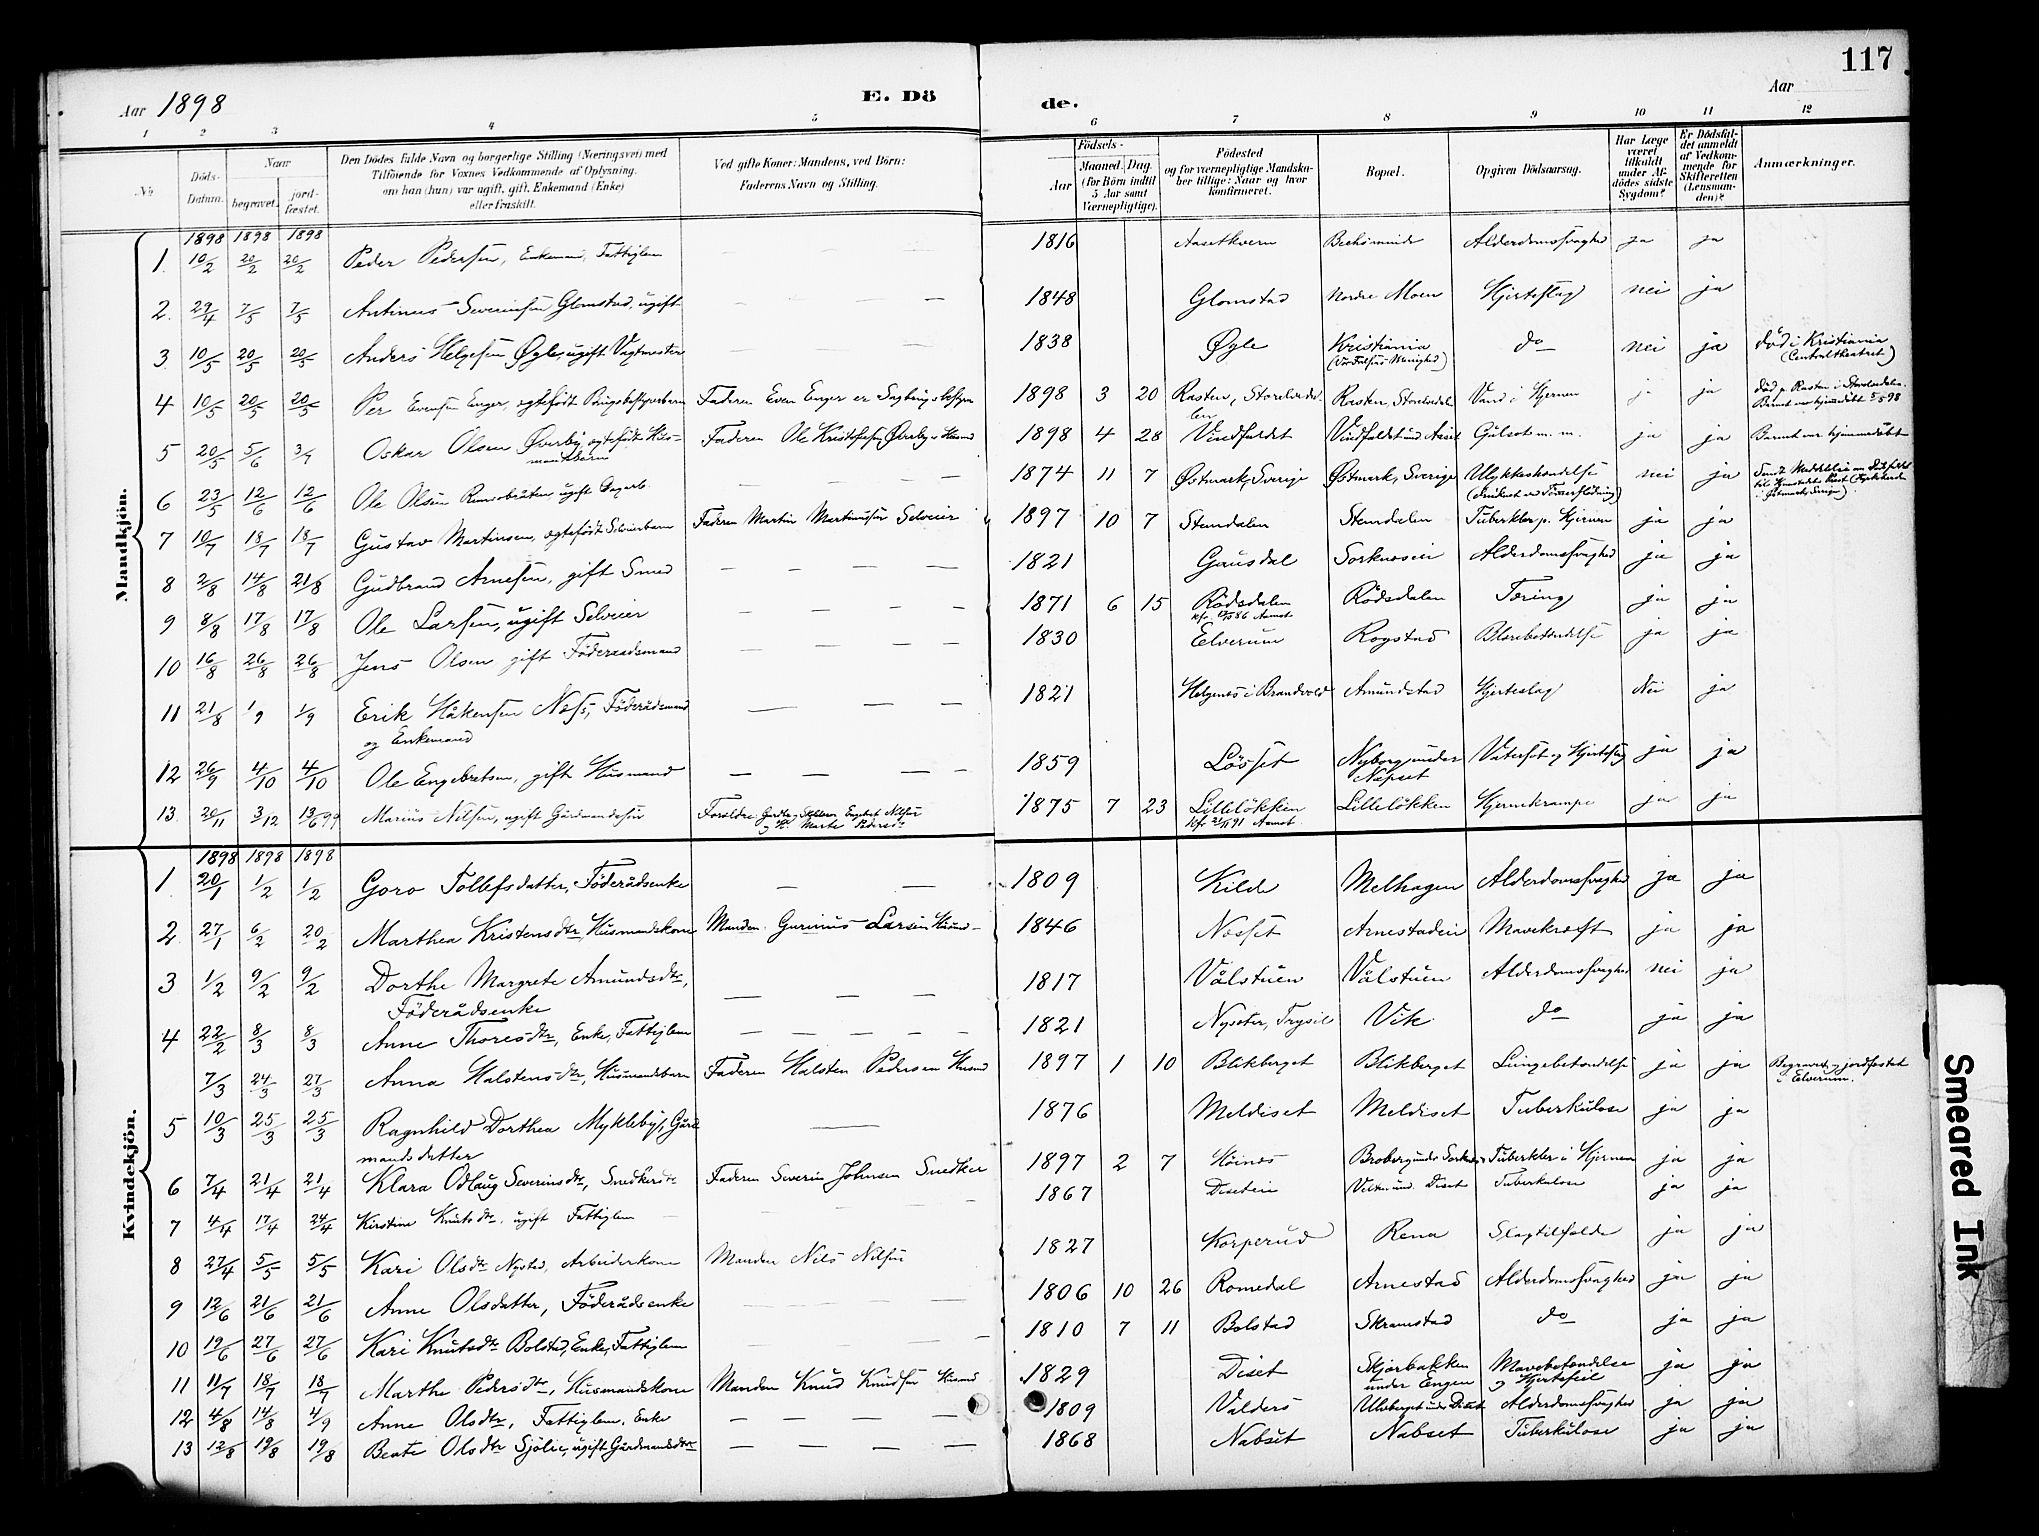 117
Aar 1898 E. Dö de. Aar
1 2 3 4 5 6 7 8 9 10 11 12
No. Döds-Datum. Naar begravet. jordfæstet. Den Dödes fulde Navn og borgerlige Stilling (Næringsvei) med Tilföiende for Voxnes Vedkommende af Oplysning, om han (hun) var ugift, gift, Enkemand (Enke) eller fraskilt. Ved gifte Koner: Mandens, ved Börn: Faderens Navn og Stilling. Födsels- Aar Maaned. Dag. (for Börn indtil 5 Aar samt Værnepligtige). Födested og for værnepligtige Mandskaber tillige: Naar og hvor konfirmeret. Bopæl. Opgiven Dödsaarsag. Har Læge været tilkaldt under Afdödes sidste Sygdom? Er Dödsfaldet anmeldt af Vedkommende for Skifteretten (Lensmanden)? Anmærkninger.
Mandkjön.
1898 1898 1898
1. 10/2 20/2 20/2 Peder Pedersen, Enkemand, Fattiglem 1816 Aasetkvern Alderdomssvaghed ja ja
2. 29/4 7/5 7/5 Antinius Severinsen Glomstad, ugift 1848 Glomstad Nordre Moen Hjerteslag nei ja
3. 10/5 20/5 20/5 Anders Helgesen Øgle, ugift Vagtmester 1838 Øgle Kristiania do nei ja död i Kristiania (Centraltheatret)
4 10/5 20/5 20/5 Per Evensen Enger, ægtefödt Faderen Even Enger er 1898 3 20 Rasten, Storelvedalen Rasten, Storelvedalen Vand i Hjernen ja ja död p. Rasten i Storelvedalen. Barnet var hjemmedöbt 5/5 98
5 20/5 5/6 3/7 Oskar Olsen Øverby, ægtefödt Husmandsbarn Faderen Ole Kristofersen Øverby er Husmd 1898 4 28 Vindfaldet Vindfaldet und Aaset Gulsot m. m. ja ja Barnet var hjemmedöbt
6 23/5 12/6 12/6 Ole Olsen ugift Dagarb. 1874 11 7 Østmark, Sverige Østmark, Sverige Ulykkeshændelse (druknet ved Tömmerflödning) nei ja
7 10/7 18/7 18/7 Gustav Martinsen, ægtefödt Selveierbarn Faderen Martin Martinusen Selveier 1897 10 7 Stemdalen Stemdalen Tuberkler p. Hjernen ja ja
8 2/8 14/8 21/8 Gudbrand Arnesen, gift Smed 1821 Gausdal Sorkneseie Alderdomssvaghed ja ja
9 8/8 17/8 17/8 Ole Larsen, ugift Selveier 1871 6 15 Rödsdalen Aamot Rödsdalen Tæring ja ja
10 16/8 26/8 26/8 Jens Olsen gift Föderaadsmand 1830 Elverum Rogstad Blærebetændelse ja ja
11 21/8 1/9 1/9 Erik Håkensen Næss, Föderådsmand og Enkemand 1821 Helgenes i Brandvold Amundstad Hjerteslag Nei ja
12 26/9 4/10 4/10 Ole Engebretsen, gift Husmand 1859 Lösset Nyborg under Næpset Vatersot og Hjerteslag ja ja
13. 20/11 3/12 13/6 99 Marius Nilsen, ugift Gårdmandssön Forældre: Engebret Nilsen og H. Marte Pedersdr 1875 7 23 Lilleløkken Aamot Lilleløkken Hjernekrampe ja ja
Kvindekjön.
1898 1898 1898
1. 20/1 1/2 1/2 Goro Tollefsdatter, Föderådsenke 1809 Kilde Melhagen Alderdomssvaghed ja ja
2. 27/1 6/2 20/2 Marthea Kristensdtr, Husmandskone Manden Gunerius Larsen Husmd 1846 Næsset Arnestadeie Mavekræft ja ja
3 1/2 9/2 9/2 Dorthe Margrete Amundsdtr, Föderådsenke 1817 Vålstuen Vålstuen Alderdomssvaghed nei ja
4 22/2 8/3 8/3 Anne Thoresdtr, Enke, Fattiglem 1821 Nyseter, Trysil Vik do ja ja
7/3 24/3 27/3 Anna Halstensdtr, Husmandsbarn Faderen Halsten Pedersen Husmd 1897 1 10 Blikberget Blikberget Lungebetændelse ja ja Begravet og jordfæstet i Elverum.
5 10/3 25/3 25/3 Ragnhild Dorthea Mykleby, Gårdmandsdatter 1876 Meldiset Meldiset Tuberkulose ja ja
6 7/4 21/4 21/4 Klara Odlaug Severinsdtr, Snedkerdtr Faderen Severin Johnsen Snedker 1897 2 7 Höines Broberg under Sorknes Tuberkler i Hjernen ja ja
7 4/4 17/4 24/4 Kirstine Knutsdtr, ugift Fattiglem 1867 Diseteie und. Diset Tuberkulose ja ja
8 27/4 5/5 5/5 Kari Olsdtr Nystad, Arbeiderkone Manden Nils Nilsen 1827 Korperud Rena Slagtilfælde ja ja
9 12/6 21/6 21/6 Anne Olsdatter, Föderådsenke 1806 10 26 Romedal Arnestad Alderdomssvaghed ja ja
10 19/6 27/6 27/6 Kari Knutsdtr Bolstad, Enke, Fattiglem 1810 7 11 Bolstad Skramstad do ja ja
11 11/7 18/7 18/7 Marthe Pedersdtr, Husmandskone Manden Knud Knudsen Husmd 1829 Diset Skjærbakken under Engen Mavebetændelse og Hjertefeil ja ja
12 4/8 14/8 4/9 Anne Olsdtr, Fattiglem, Enke 1809 Valders Ulvberget under Diset Alderdomssvaghed ja ja
13 12/8 19/8 19/8 Beate Olsdtr Sjölie, ugift Gårdmandsdtr 1868 Nabset Nabset Tuberkulose ja ja
Smeared Ink